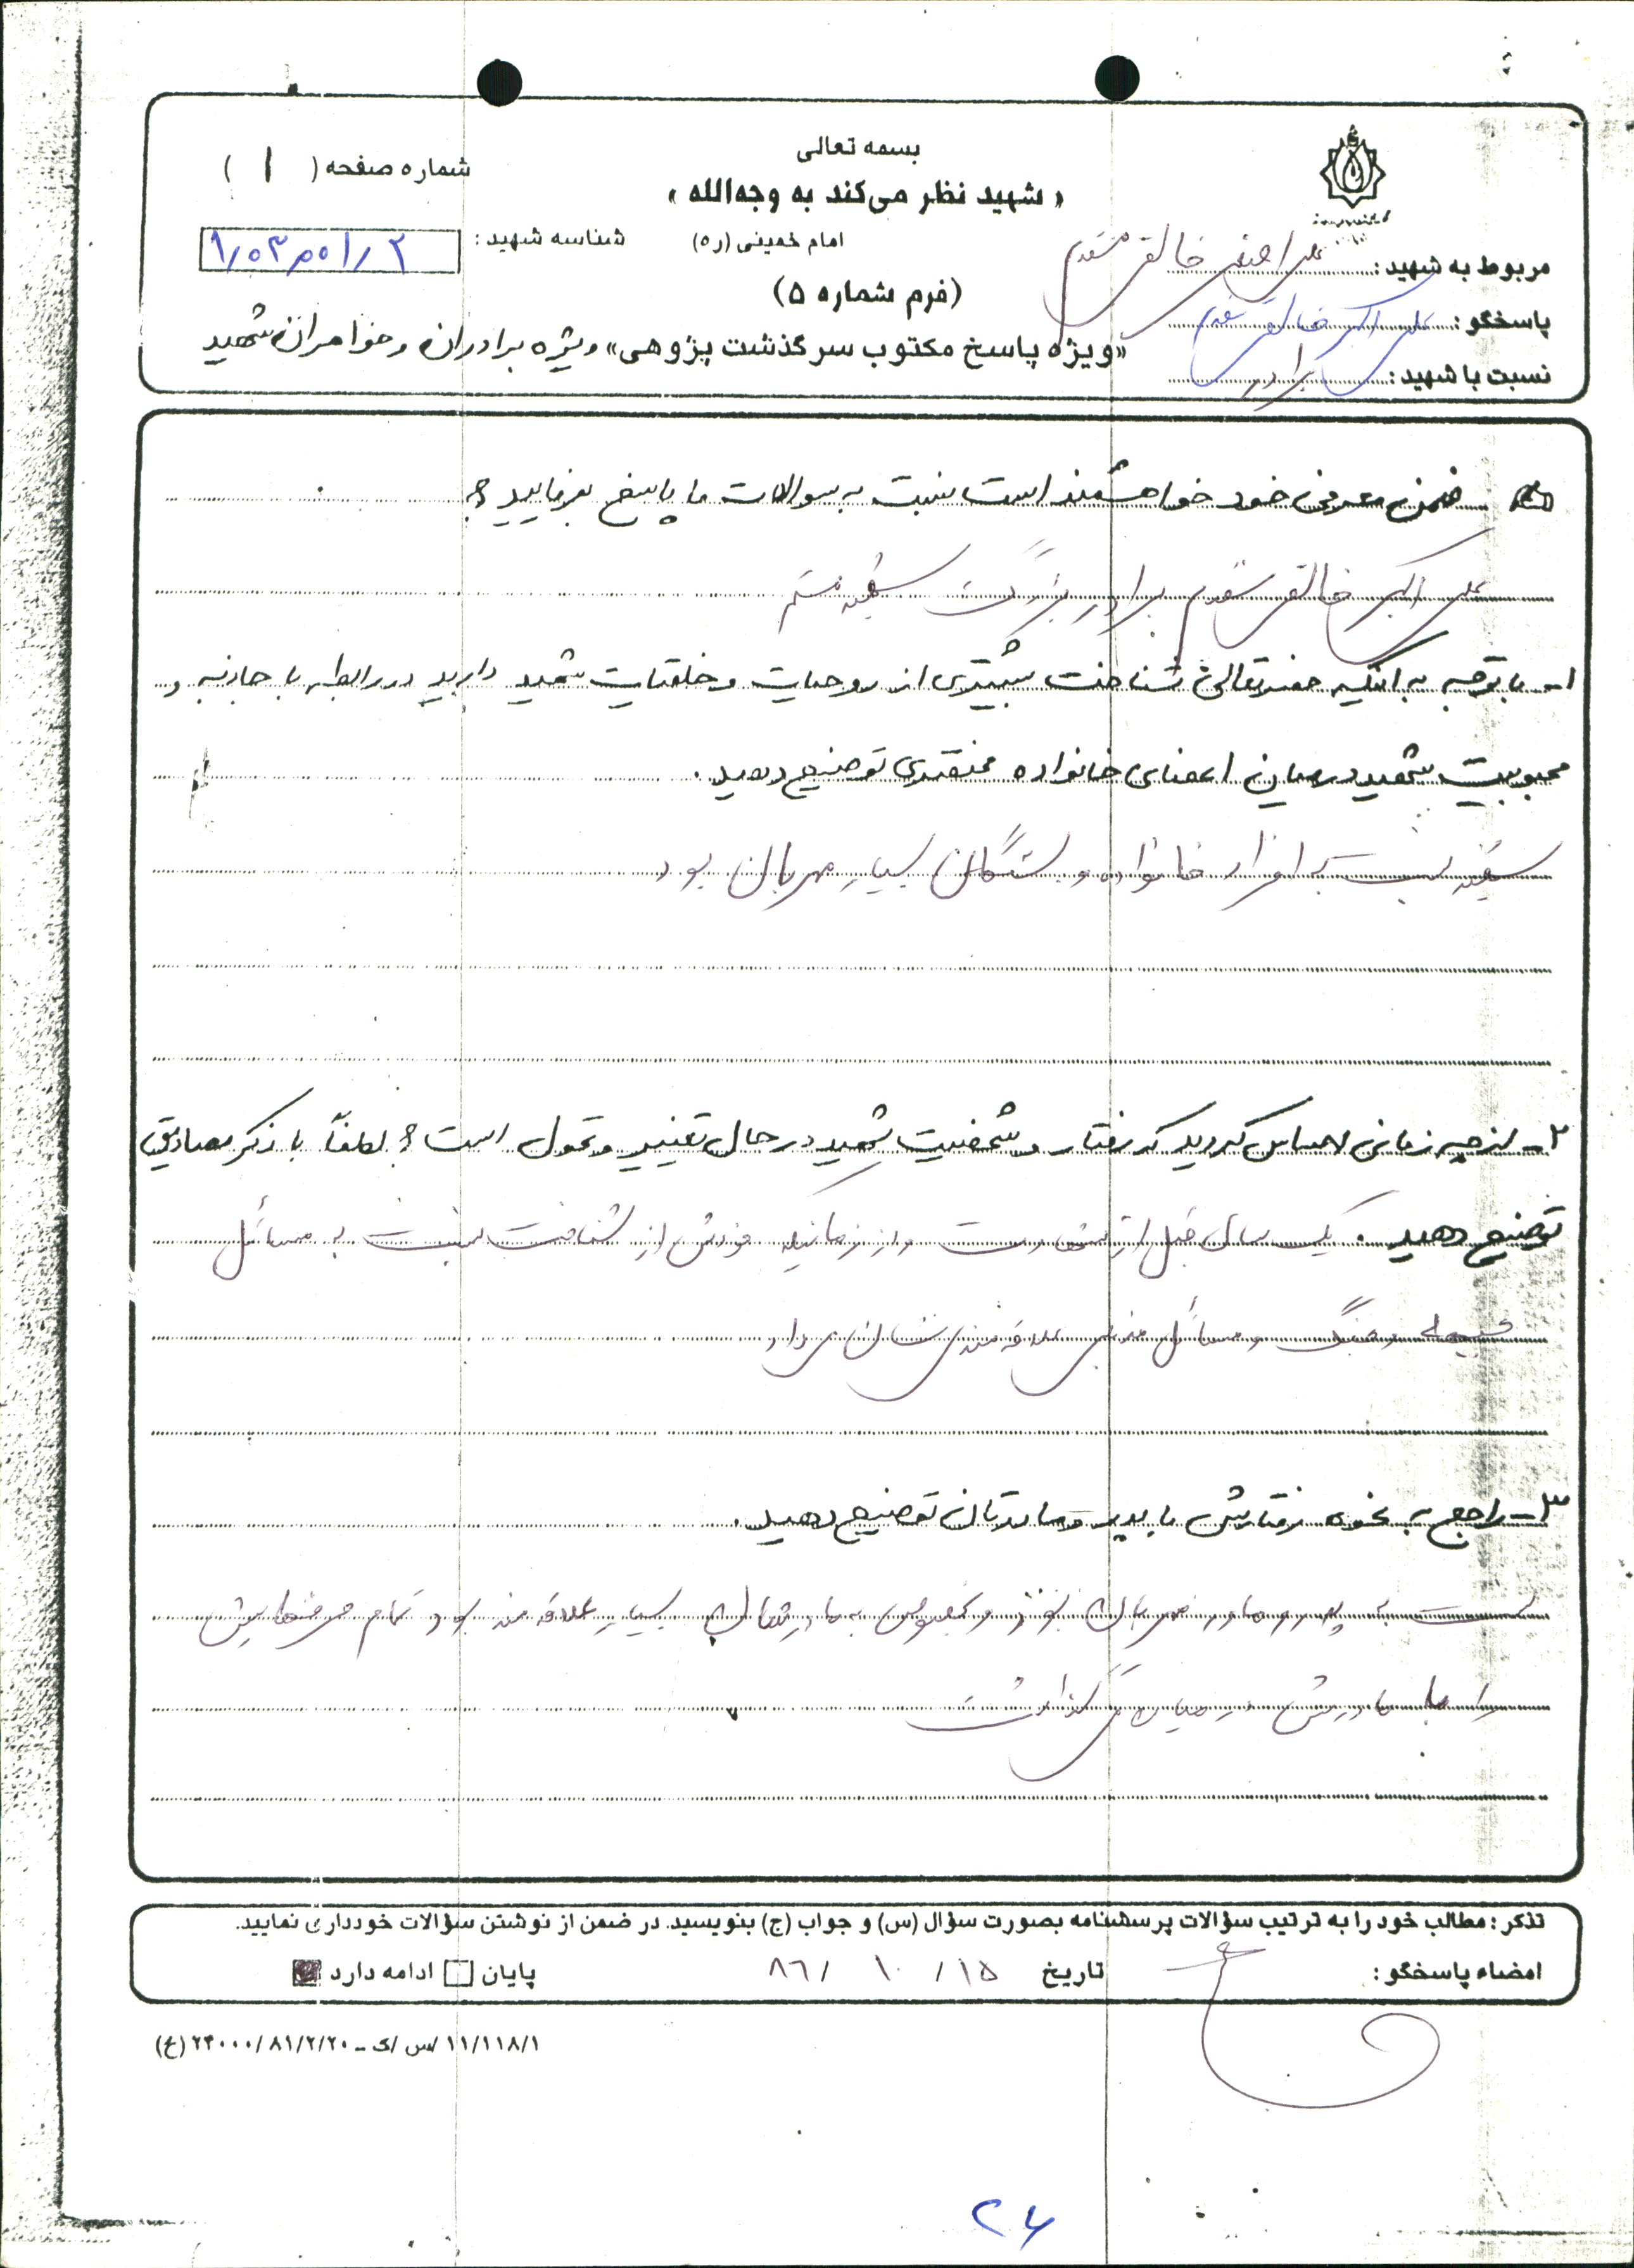 بسمه تعالی
« شهید نظر می‌کند به وجه‌الله »
امام خمینی (ره)
(فرم شماره ۵)
«ویژه پاسخ مکتوب سرگذشت پژوهی» ویژه برادران و خواهران شهید
شماره صفحه ( ۱ )
شناسه شهید :
مربوط به شهید : علی اصغر خالقی مقدم
پاسخگو : علی اکبر خالقی مقدم
نسبت با شهید : برادر
ضمن معرفی خود خواهشمند است نسبت به سوالات ما پاسخ بفرمایید ؟
علی اکبر خالقی مقدم برادر بزرگ شهید هستم
۱- با توجه به اینکه حضرتعالی شناخت بیشتری از روحیات و خلقیات شهید دارید در رابطه با جاذبه و
محبوبیت شهید در میان اعضای خانواده مختصری توضیح دهید .
شهید نسبت به افراد خانواده و بستگان بسیار مهربان بود
۲- از چه زمانی احساس کردید که رفتار و شخصیت شهید در حال تغییر و تحول است ؟ لطفاً با ذکر مصادیق
توضیح دهید . یک سال قبل از شهادت و از زمانیکه خودش از شناخت نسبت به مسائل
جبهه و جنگ و مسائل مذهبی علاقه مندی نشان می داد
۳- راجع به نحوه رفتارش با پدر و مادرتان توضیح دهید .
نسبت به پدر و مادر مهربان بودند و بخصوص به مادرشان بسیار علاقه مند بود و تمام حرفهایش
را با مادرش در میان می گذاشت
تذکر : مطالب خود را به ترتیب سؤالات پرسشنامه بصورت سؤال (س) و جواب (ج) بنویسید. در ضمن از نوشتن سؤالات خودداری نمایید.
امضاء پاسخگو : تاریخ ۱۵ / ۱۰ / ۸۶ پایان ادامه دارد
۱۱/۱۱۸/۱ /س /ی - ۲۴۰۰۰/۸۱/۲/۲۰ (ع)